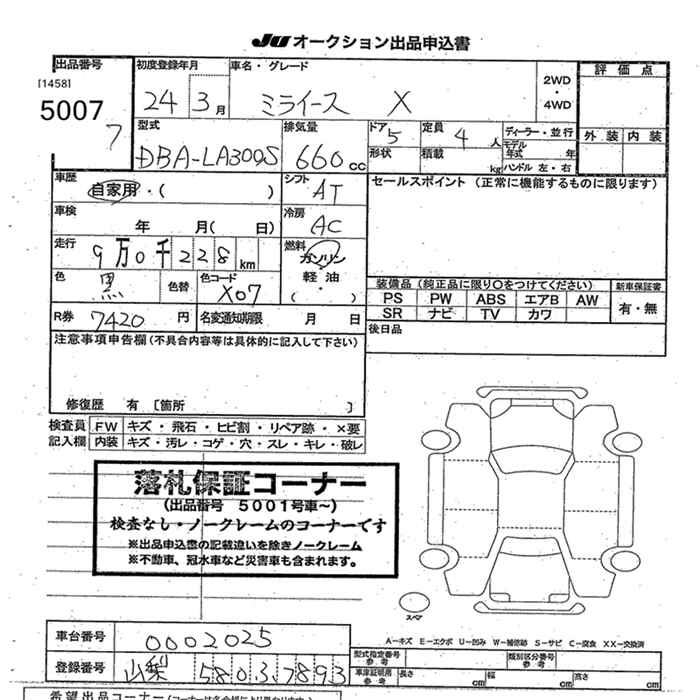 JU オークション出品申込書
出品番号 初度登録年月 車名・グレード 2WD・4WD 評価点
[1458]
5007 24 3月 ミライース X
7
型式 排気量 ドア 定員 ディーラー・並行 外装 内装
DBA-LA300S 660cc 5 4人 モデル年式 年
形状 積載 kg ハンドル 左・右
車歴 シフト セールスポイント (正常に機能するものに限ります)
自家用・( ) AT
車検 冷房
年 月( 日) AC
走行 燃料
9万0千228km ガソリン
軽油
( )
色 色替 色コード
黒 X07
装備品 (純正品に限り○をつけてください) 新車保証書
PS PW ABS エアB AW 有・無
SR ナビ TV カワ
R券 7420円 名変通知期限 月 日 後日品
注意事項申告欄(不具合内容等は具体的に記入して下さい)
修復歴 有 [箇所 ]
検査員 FW キズ・飛石・ヒビ割・リペア跡・×要
記入欄 内装 キズ・汚レ・コゲ・穴・スレ・キレ・破レ
落札保証コーナー
(出品番号 5001号車~)
検査なし・ノークレームのコーナーです
※出品申込書の記載違いを除きノークレーム
※不動車、冠水車など災害車も含まれます。
スペア
A−キズ E−エクボ U−凹み W−補修跡 S−サビ C−腐食 XX−交換済
車台番号 0002025
型式指定番号 参考 類別区分番号 参考
登録番号 山梨 580 3 7893
車庫証明用 参考 長さ cm 幅 cm 高さ cm
希望出品コーナー